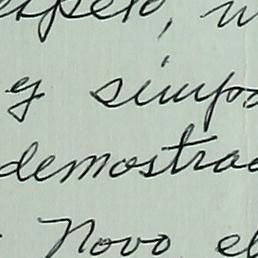 espeto, m
y simpa
demostrad
Novo el